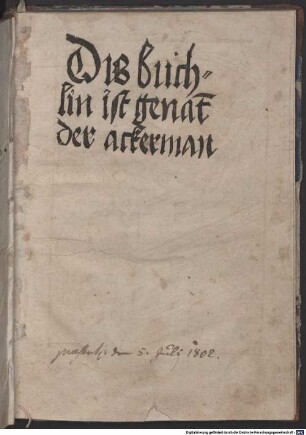 Dis buch-
lin ist genāt
der ackerman
den 5. Juli 1802.
Digitalisierung gefördert durch die Deutsche Forschungsgemeinschaft